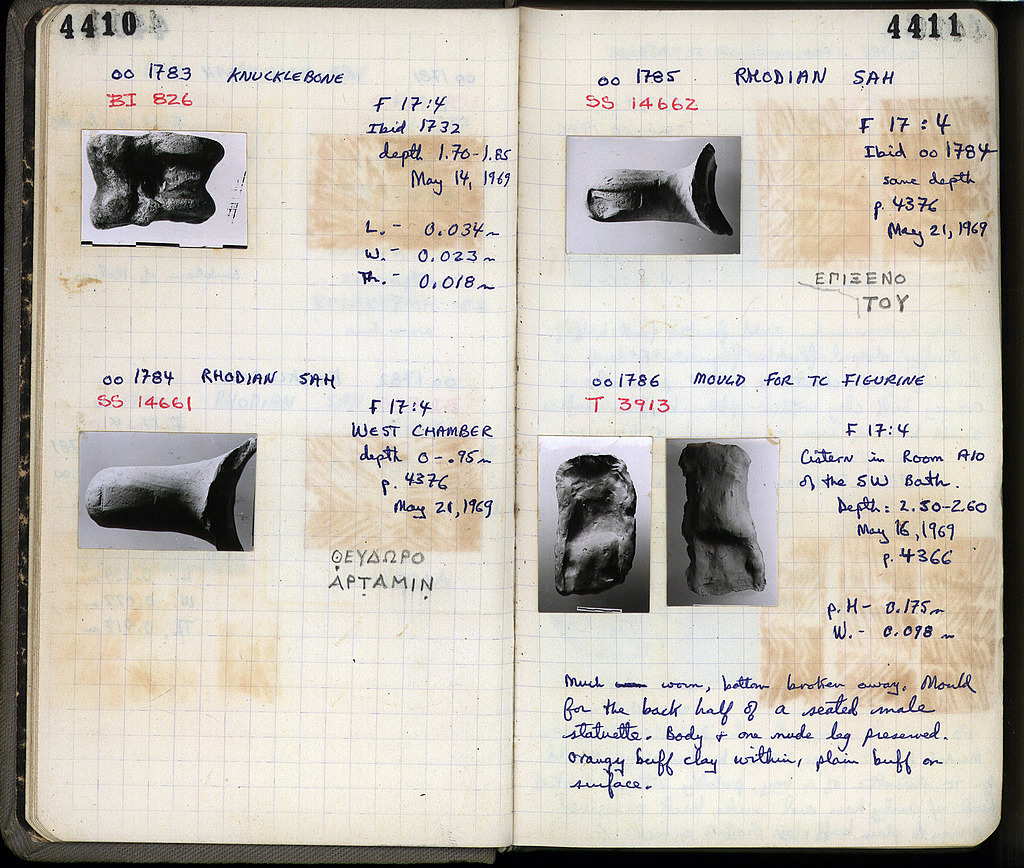 4410
oo 1783 KNUCKLEBONE
BI 826
F 17:4
Ibid 1732
depth 1.70-1.85
May 14, 1969
L. - 0.034m
W. - 0.023m
Th. - 0.018m
oo 1784 RHODIAN SAH
SS 14661
F 17:4
WEST CHAMBER
depth 0-.95m
p. 4376
May 21, 1969
ΘΕΥΔΩΡΟ
ΑΡΤΑΜΙΝ
4411
oo 1785 RHODIAN SAH
SS 14662
F 17:4
Ibid oo 1784
same depth
p. 4376
May 21, 1969
ΕΠΙΞΕΝΟ
ΤΟΥ
oo 1786 MOULD FOR TC FIGURINE
T 3913
F 17:4
Cistern in Room A10
of the SW Bath.
Depth: 2.50-2.60
May 16, 1969
p. 4366
p.H - 0.175m
W. - 0.098m
Much worn, bottom broken away. Mould
for the back half of a seated male
statuette. Body + one nude leg preserved.
Orangy buff clay within, plain buff on
surface.